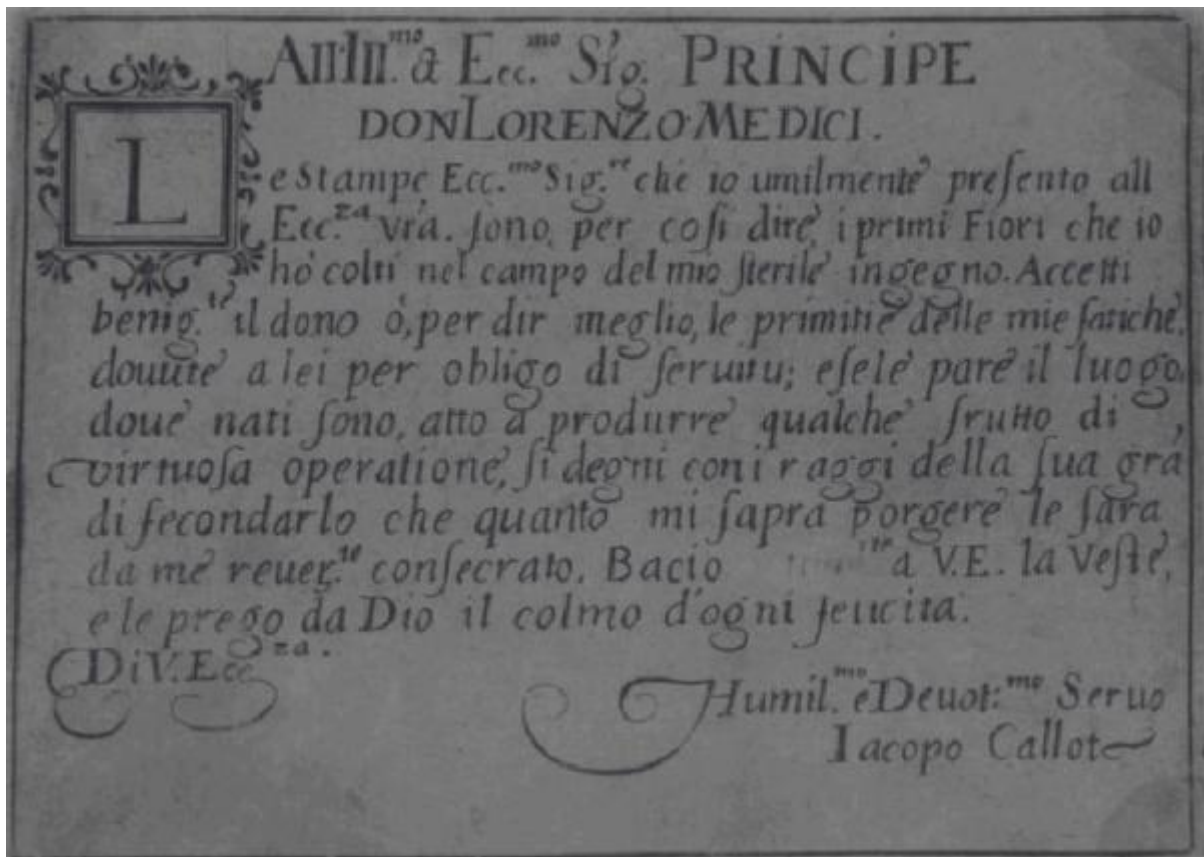 All Ill.mo & Ecc.mo Sig. PRINCIPE
DON LORENZO MEDICI.
Le Stampe, Ecc.mo Sig.re che io umilmente presento all
Ecc.za vrã. sono, per cosi dire, i primi Fiori che io
hò colti nel campo del mio sterile ingegno. Accetti
benig.te il dono ò, per dir meglio, le primitie delle mie fatiche,
douute a lei per obligo di seruitu; e se le pare il luogo,
doue nati sono, atto à produrre qualche frutto di
virtuosa operatione, si degni con i raggi della sua gra,
di fecondarlo che quanto mi sapra porgere le sara
da me reuer.te consecrato. Bacio a V.E. la Veste,
e le prego da Dio il colmo d'ogni felicita.
Di V. Ecc.za.
Humil.mo e Deuot.mo Seruo
Iacopo Callot